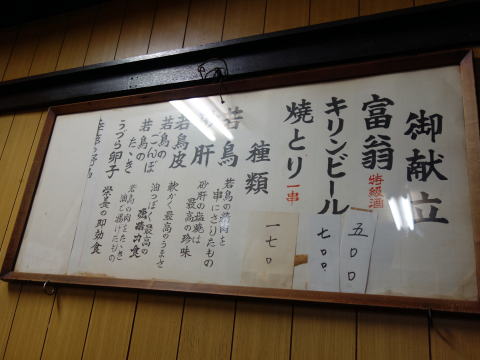 御献立
富翁 特級酒 五〇〇
キリンビール 七〇〇
焼とり 一串 一七〇
種類
若鳥 若鳥の精肉を串にさしたもの
肝 砂肝の塩焼は最高の珍味
若鳥皮 軟かく最高のうまさ
若鳥のごんぼ 油っぽく最高の
若鳥のたゝき 若鳥の肉をたゝき油で揚げたもの
うづら卵子 栄養の即効食